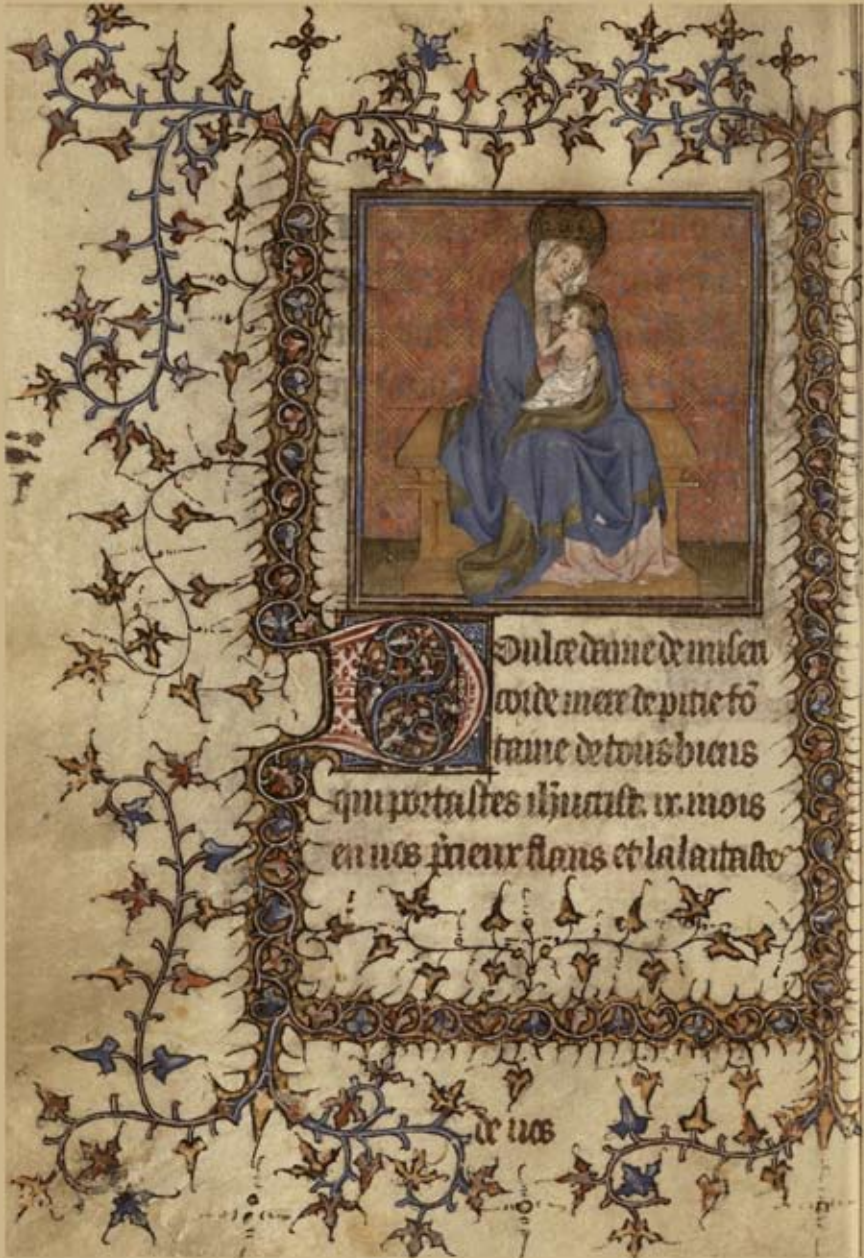 Doulce dame de miseri
corde mere de pitie fō
taine de tous biens
qui portastes ihūcrist. ix. mois
en uos p̄cieux flans et lalaitaste
de uos